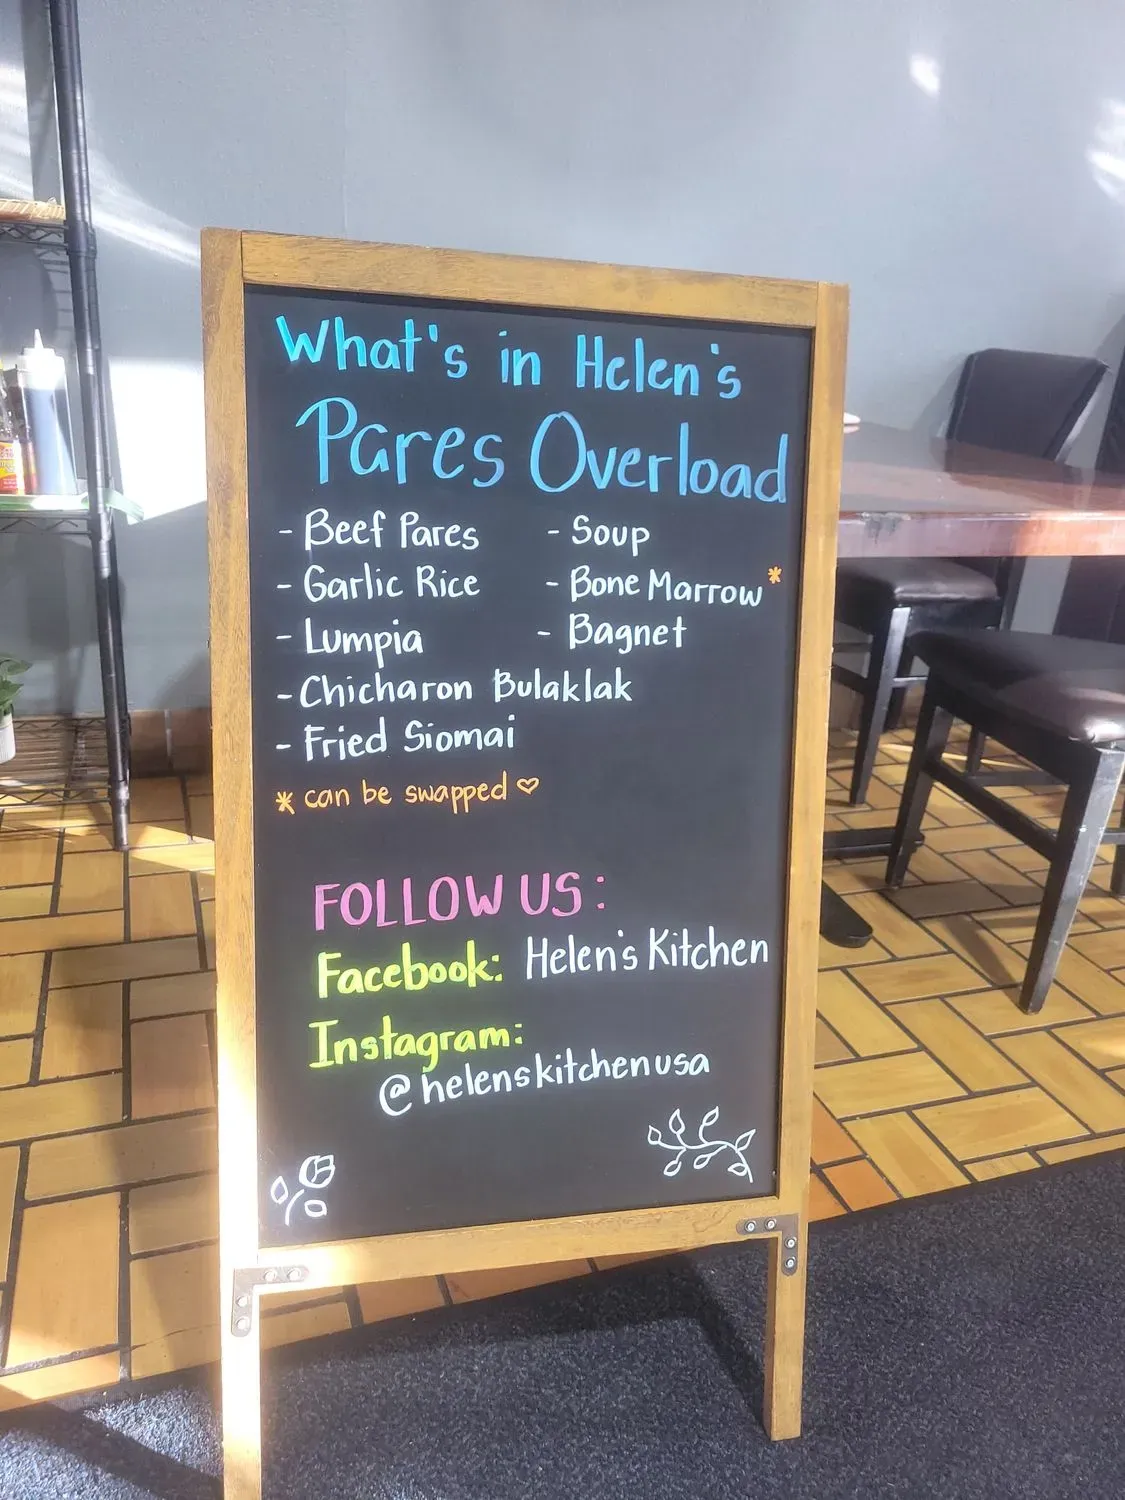 What's in Helen's
Pares Overload
- Beef Pares
- Garlic Rice
- Lumpia
- Chicharon Bulaklak
- Fried Siomai
- Soup
- Bone Marrow*
- Bagnet
* can be swapped ♡
FOLLOW US:
Facebook: Helen's Kitchen
Instagram:
@helenskitchenusa